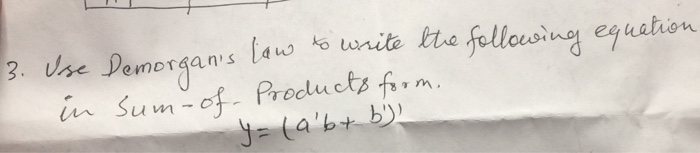 3. Use Demorgan's law to write the following equation
in Sum-of-Products form.
y = (a'b + b')'